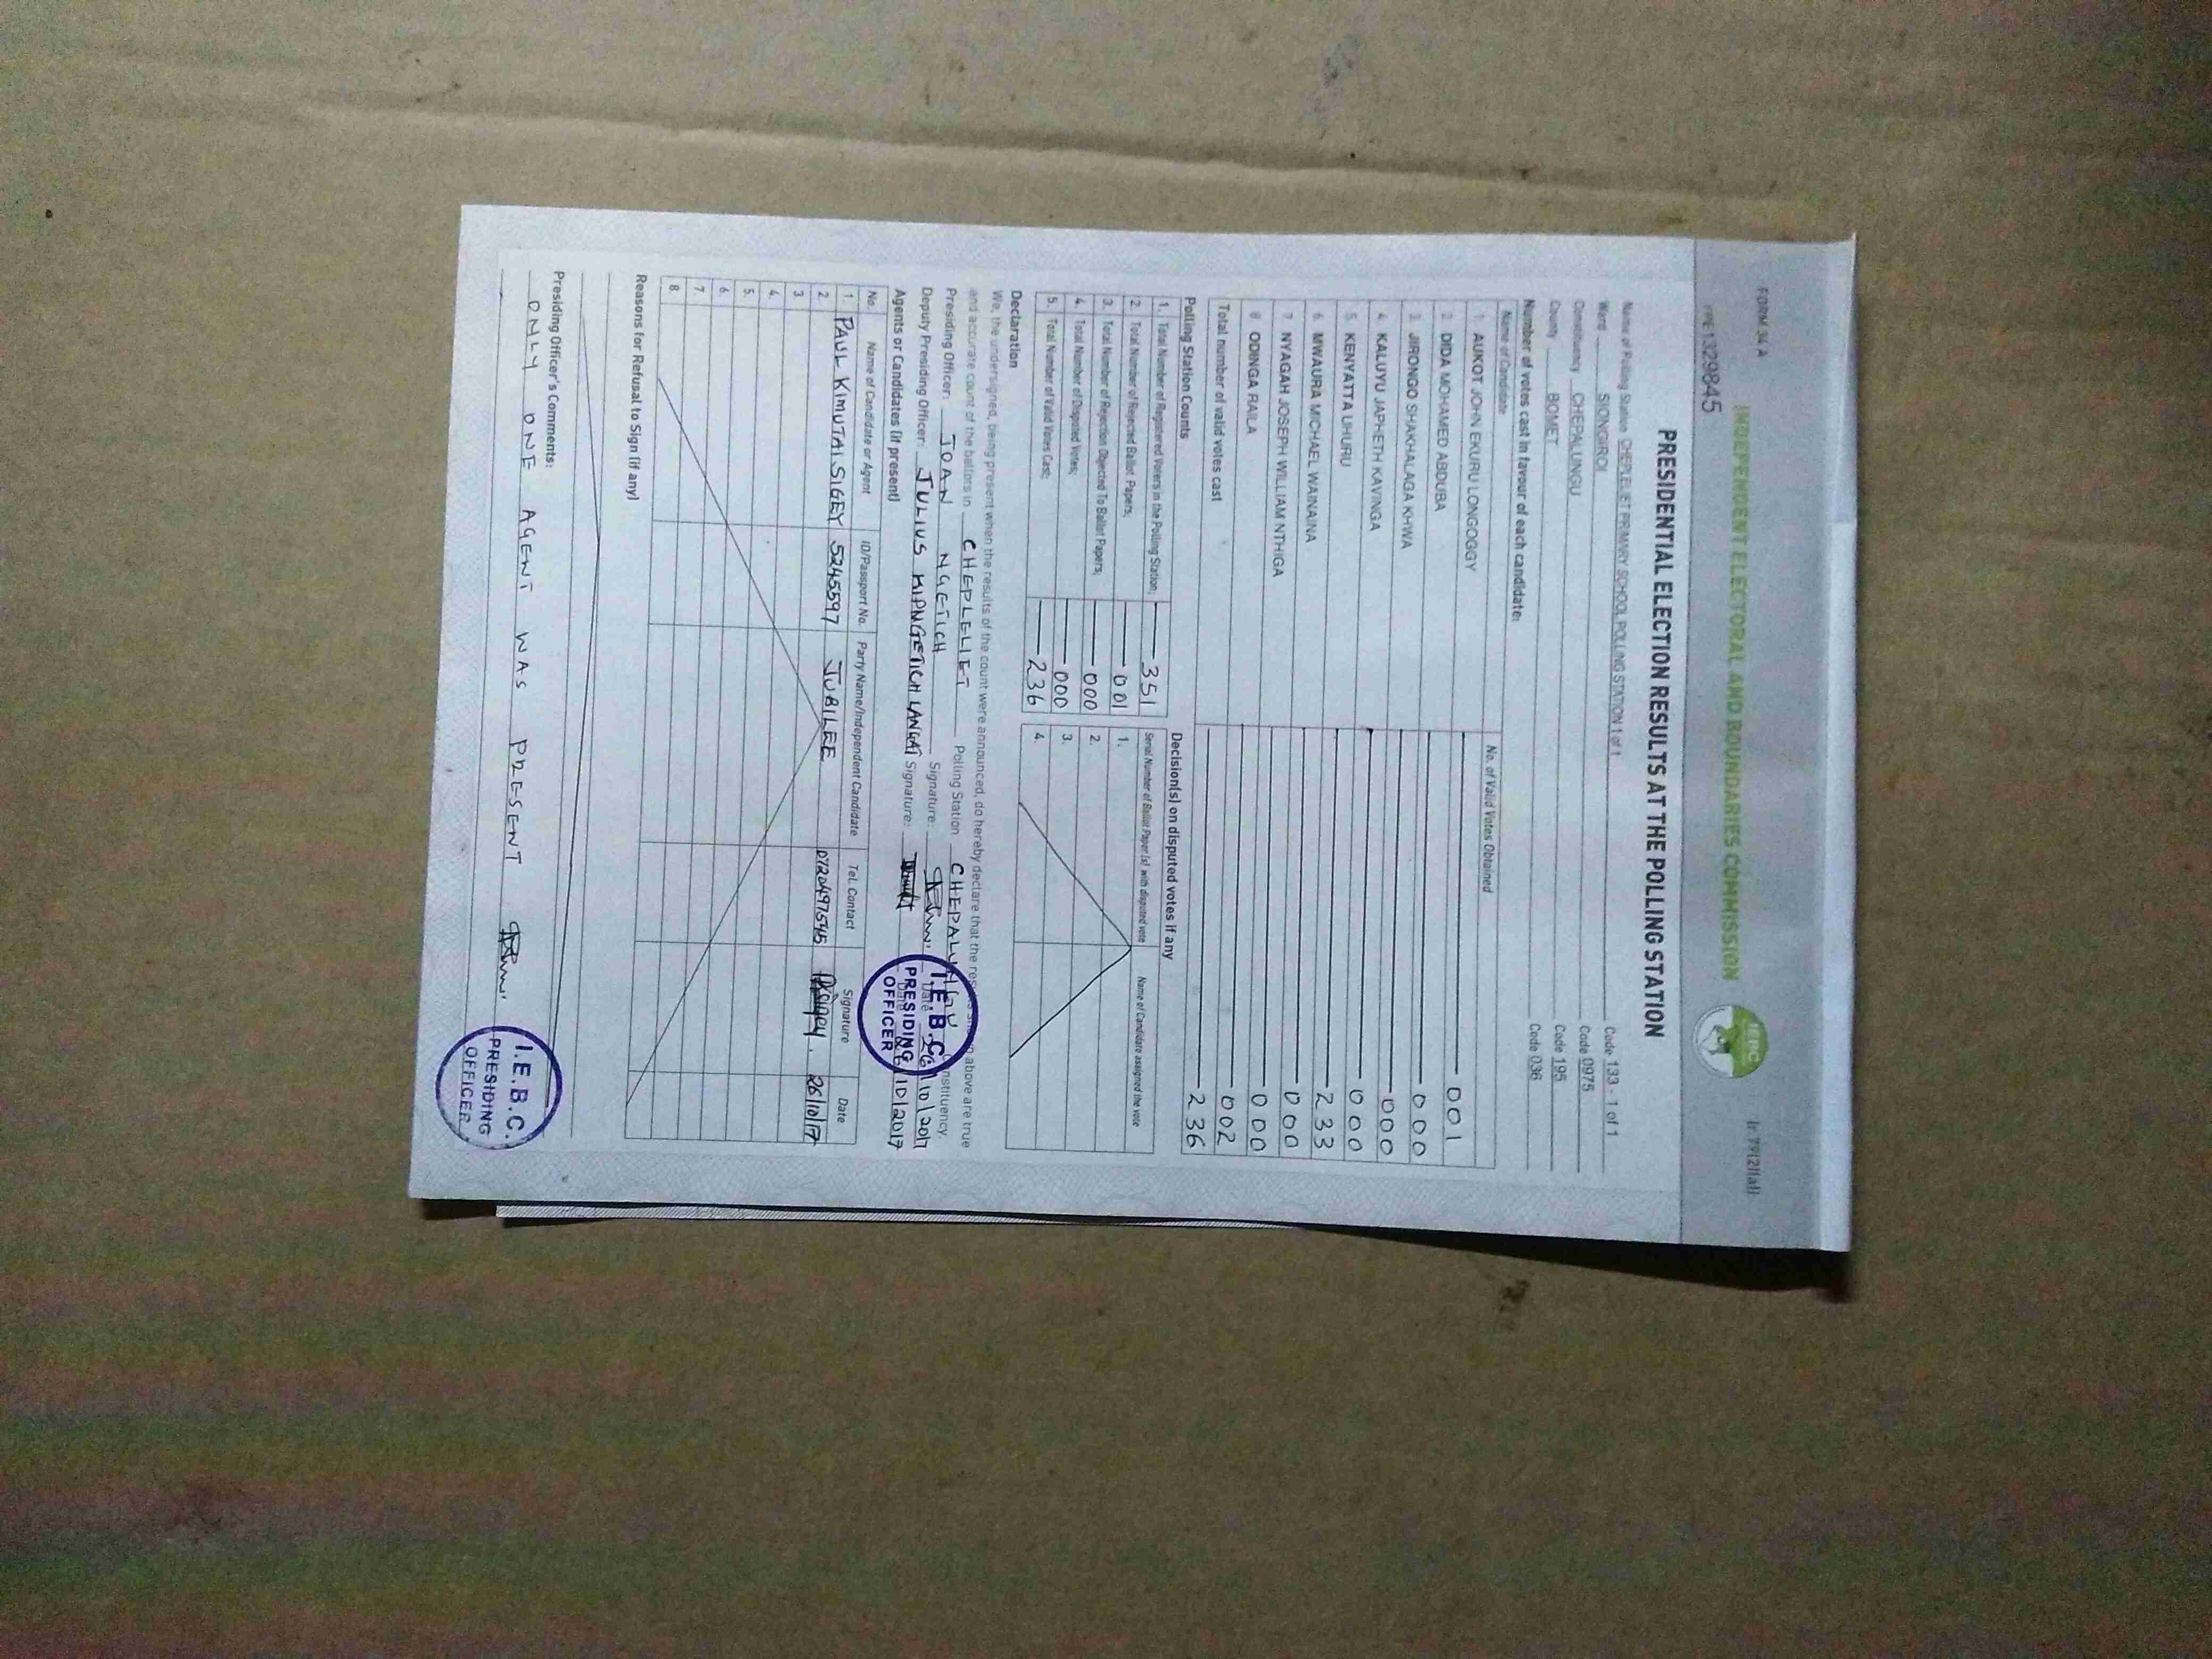 FORM 34 A
INDEPENDENT ELECTORAL AND BOUNDARIES COMMISSION
IEBC
(r 79(2)(a))
PPE1329845
PRESIDENTIAL ELECTION RESULTS AT THE POLLING STATION
Name of Polling Station CHEPLELIET PRIMARY SCHOOL POLLING STATION 1 of 1 Code 133 - 1 of 1
Ward SIONGIROI Code 0975
Constituency CHEPALUNGU Code 195
County BOMET Code 036
Number of votes cast in favour of each candidate:
Name of Candidate No. of Valid Votes Obtained
1. AUKOT JOHN EKURU LONGOGGY 001
2. DIDA MOHAMED ABDUBA 000
3. JIRONGO SHAKHALAGA KHWA 000
4. KALUYU JAPHETH KAVINGA 000
5. KENYATTA UHURU 233
6. MWAURA MICHAEL WAINAINA 000
7. NYAGAH JOSEPH WILLIAM NTHIGA 000
8. ODINGA RAILA 002
Total number of valid votes cast 236
Polling Station Counts
1. Total Number of Registered Voters in the Polling Station; 351
2. Total Number of Rejected Ballot Papers; 001
3. Total Number of Rejection Objected To Ballot Papers; 000
4. Total Number of Disputed Votes; 000
5. Total Number of Valid Votes Cast; 236
Decision(s) on disputed votes if any
Serial Number of Ballot Paper (s) with disputed vote Name of Candidate assigned the vote
1.
2.
3.
4.
Declaration
We, the undersigned, being present when the results of the count were announced, do hereby declare that the above are true
and accurate count of the ballots in CHEPLELIET Polling Station CHEPALUNGU Constituency.
Presiding Officer: JOAN NGETICH Signature: Date 26/10/2017
Deputy Presiding Officer: JULIUS KIPNGETICH LANGAT Signature: Date 26/10/2017
I.E.B.C.
PRESIDING
OFFICER
Agents or Candidates (if present)
No. Name of Candidate or Agent ID/Passport No. Party Name/Independent Candidate Tel. Contact Signature Date
1. PAUL KIMUTAI SIGEY 5245597 JUBILEE 0720497545 26/10/17
2.
3.
4.
5.
6.
7.
8.
Reasons for Refusal to Sign (if any)
Presiding Officer's Comments:
ONLY ONE AGENT WAS PRESENT
I.E.B.C.
PRESIDING
OFFICER